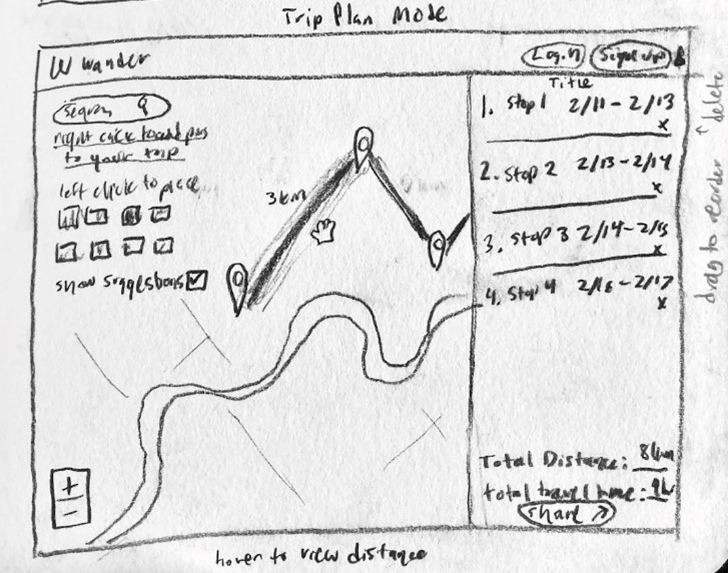 Trip Plan Mode
W Wander
Log in
Sign up
Search
right click to add pins
to your trip
left click to place
show suggestions
3km
+
-
Title
1. Stop 1 2/11 - 2/13
x
2. Stop 2 2/13 - 2/14
x
3. Stop 3 2/14 - 2/15
x
4. Stop 4 2/16 - 2/17
x
Total Distance: 8km
total travel time: 9h
Share ↗
drag to reorder ↑ delete
hover to view distance